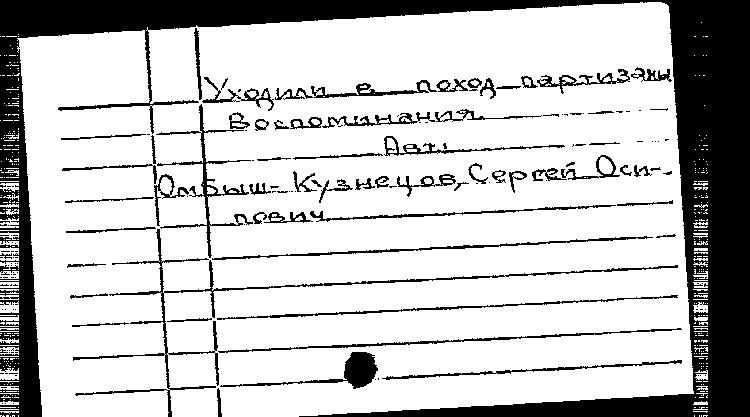 Уходили в поход партизаны
Воспоминания.
Авт.:
Омбыш-Кузнецов, Сергей Оси-
пович